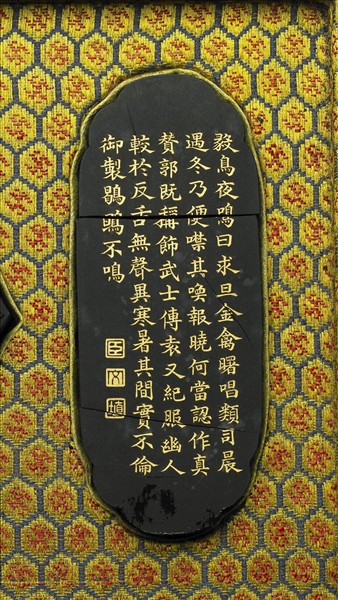 毅鳥夜鳴曰求旦金禽曙唱類司晨
遇冬乃便噤其喚報曉何當認作真
贊郭既稱飾武士傳袁又紀服幽人
較於反舌無聲異寒暑其間實不倫
御製鶡鴠不鳴
臣文埴